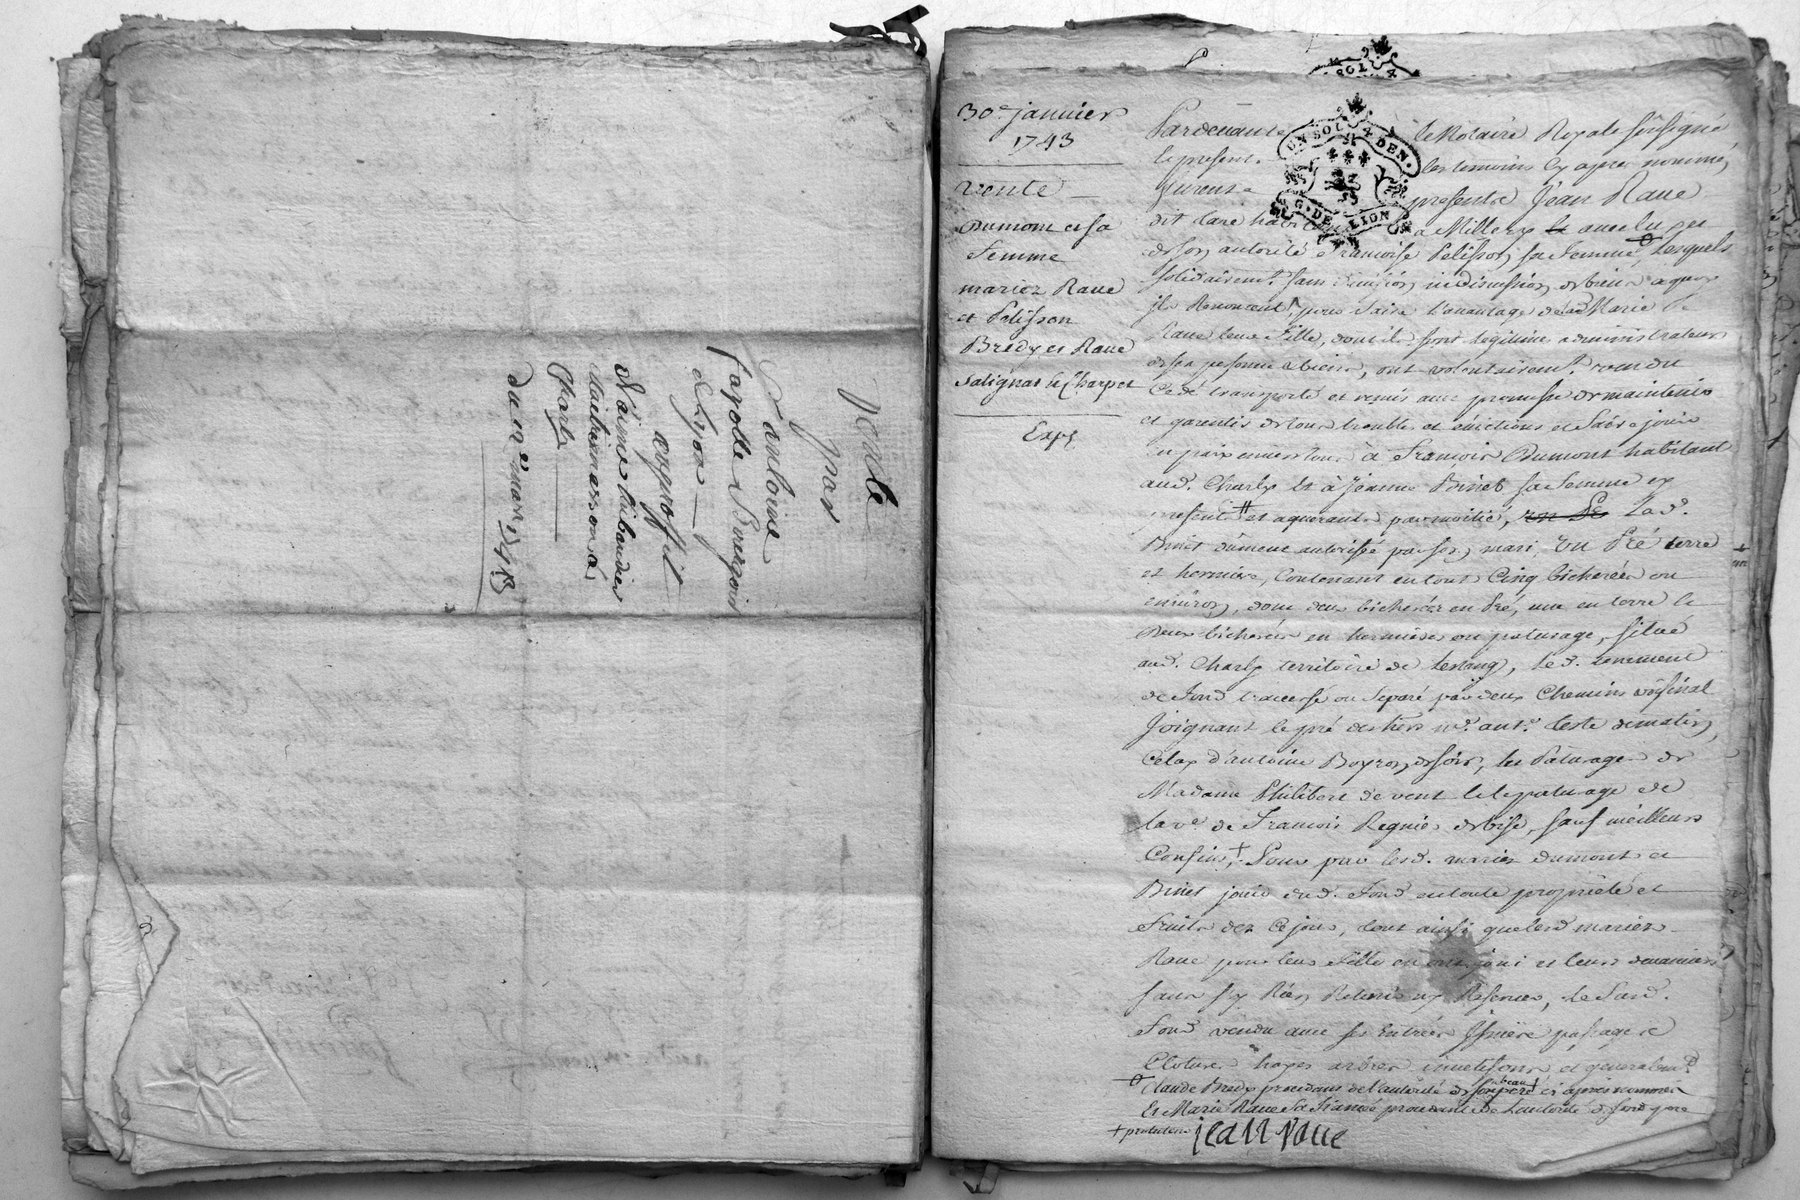 Vente
par
S.r antoine
fayolle Bourgeois
a Lyon
au proffit
d'aimé thibaudier
Maitre masson à
Charly
Du 12 mars 1743
UN SOL 4 DEN.
G. DE LION
30e janvier
1743
vente
Dumont et sa
femme
mariez Raue
et Pelisson
Bredy et Raue
Salignat le Charpet
Exp
Pardevant le Notaire Royale soûsigné
et present les temoins cy apres nommés
furent presents Jean Raue
dit Caré habitant a Millery avec lu et
de son autorité francoise Pelisson sa femme, lesquels
solidairemt. sans division, ni discussion de biens a quoy
ils Renoncent, pour faire l'avantage de lad Marie
Raue leur fille, dont ils sont legitimes administrateurs
de sa personne et biens, ont volontairemt. vendu
Cedé transporté et remis avec promesse de maintenir
et garentir de tous troubles et évictions et faire jouir
en paix envers tous à francois Dumont habitant
aud. Charly Et à jeanne Binet sa femme cy
presents # et aquerants par moitié, Lad.
Binet dûment autorisée par son mari, Un Pré terre
et hermiere, Contenant en tout Cinq bicherées ou
environ, dont deux bicherées en Pré, une en terre et
deux bicherées en hermieres ou paturage, situé
aud. Charly territoire de Lestang, led. tenement
de fond traversé ou separé par deux Chemins voisinal
Joignant le pré des hers Mr. ant. Leste de matin,
Celuy d'antoine Boyron de soir, les Paturage de
Madame Philibert de vent et le paturage de
la ve de francois Regnier de bise, sauf meilleurs
Confins + Pour par lesd. mariez dumont et
Binet jouir dud. fond en toute proprieté et
fruits dez Ce jour, tout ainsi que lesd mariez
Raue pour leur fille en ont joui et leurs devanciers
sans s'y Rien Retenir ny Reserver, le Susd.
fond vendu avec ses Entrées Issuës passages
Clotures hayes arbres investisons et generalemt.
Claude Bredy procedant de l'autorité de son beau pere ci apres nommé
Et Marie Raue sa fiancée procedante de L'autorité de sond pere
jean raue